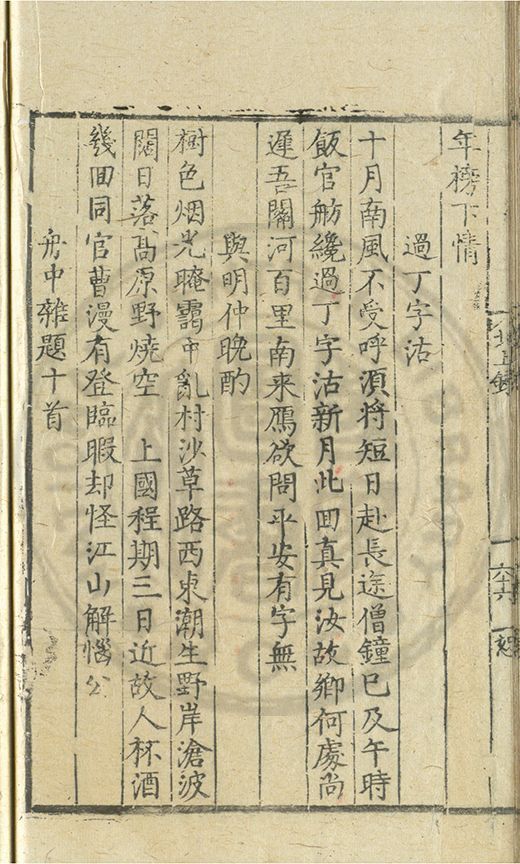 年榜下情
過丁字沽
十月南風不受呼須將短日赴長途僧鐘已及午時
飯官舫纔過丁字沽新月此回真見汝故鄉何處尚
遲吾關河百里南来鴈欲問平安有字無
與明仲晚酌
樹色烟光晻靄中亂村沙草路西東潮生野岸滄波
闊日落高原野燒空 上國程期三日近故人杯酒
幾回同官曹漫有登臨暇却怪江山解惱公
舟中雜題十首